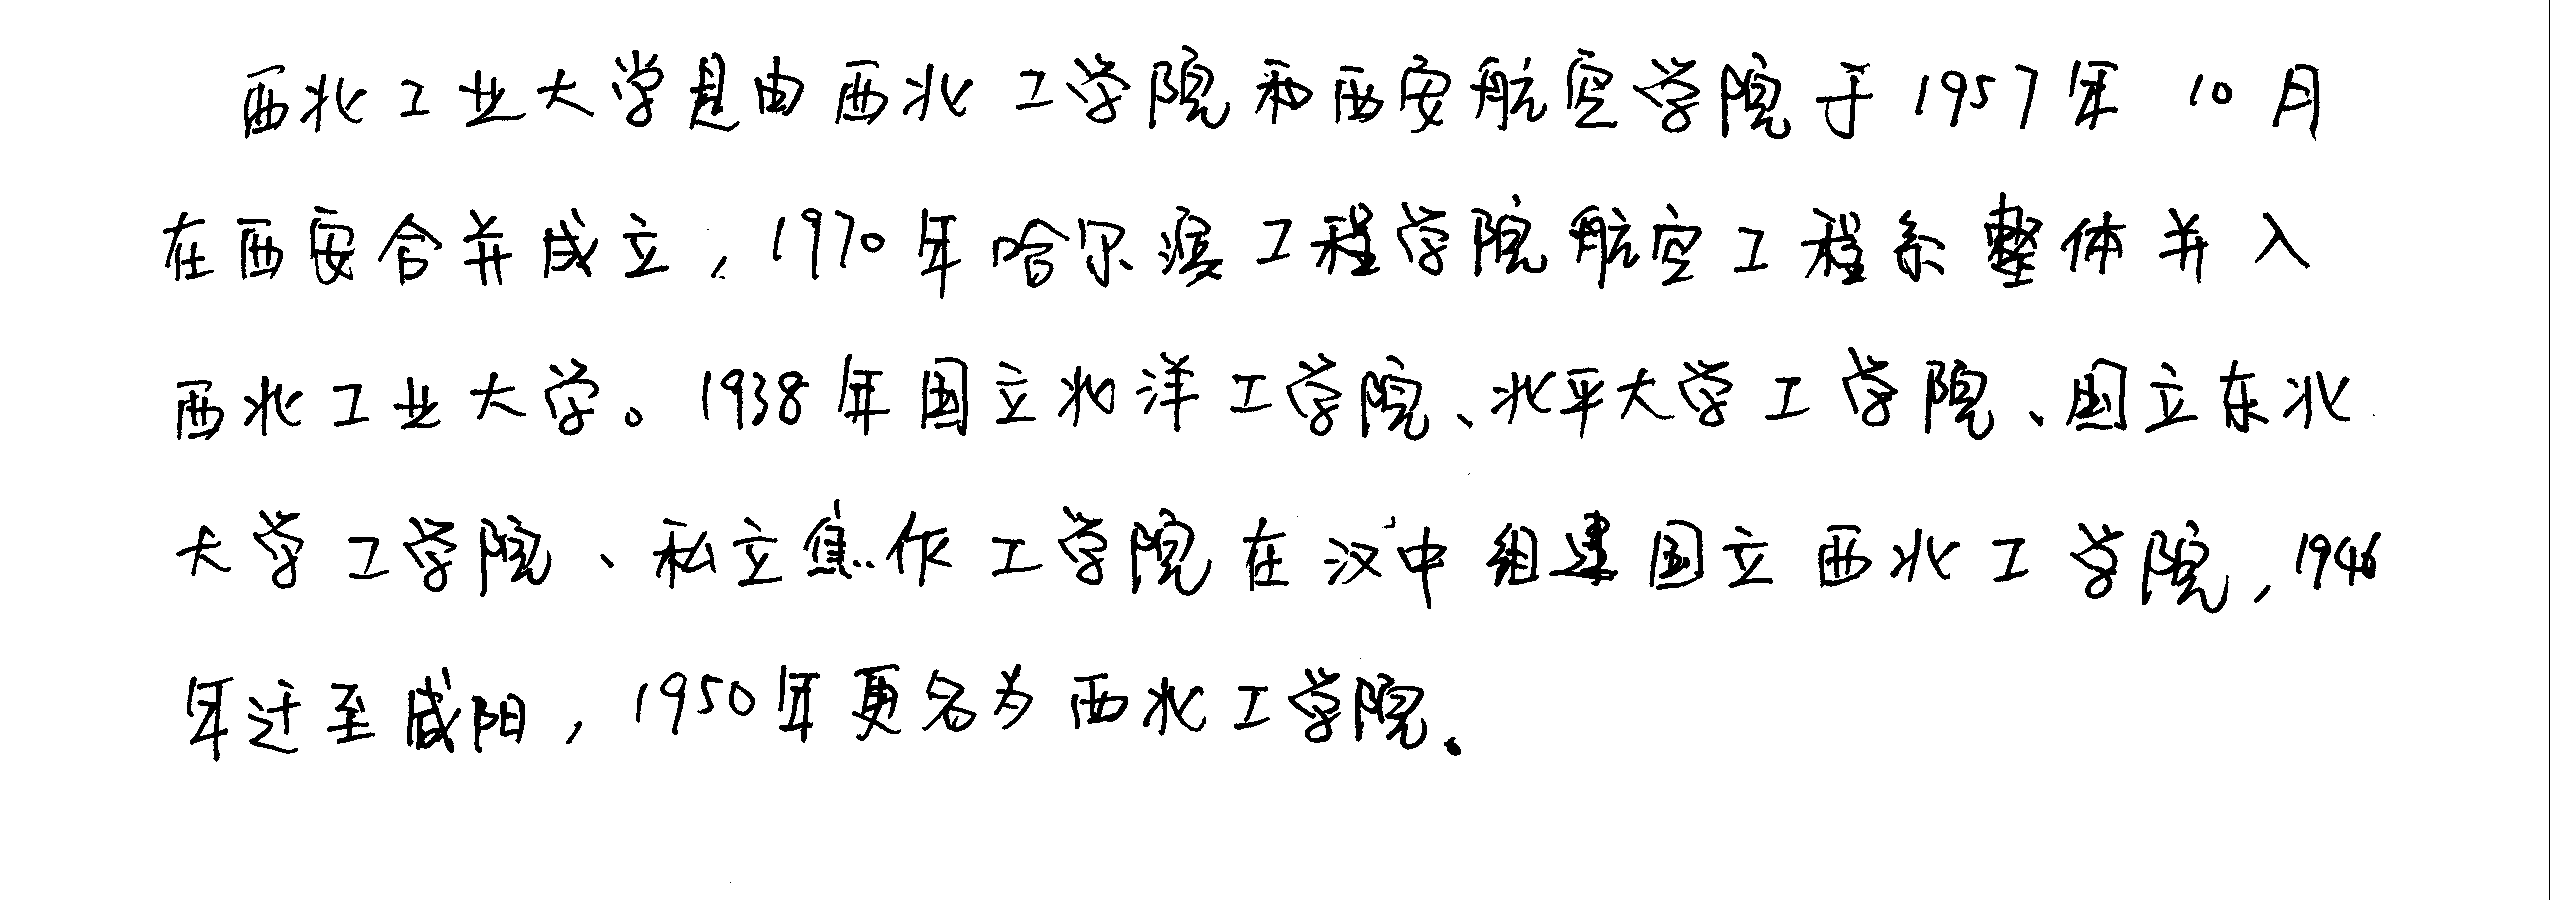 西北工业大学是由西北工学院和西安航空学院于1957年10月
在西安合并成立,1970年哈尔滨工程学院航空工程系整体并入
西北工业大学。1938年国立北洋工学院、北平大学工学院、国立东北
大学工学院、私立焦作工学院在汉中组建国立西北工学院,1946
年迁至咸阳,1950年更名为西北工学院.